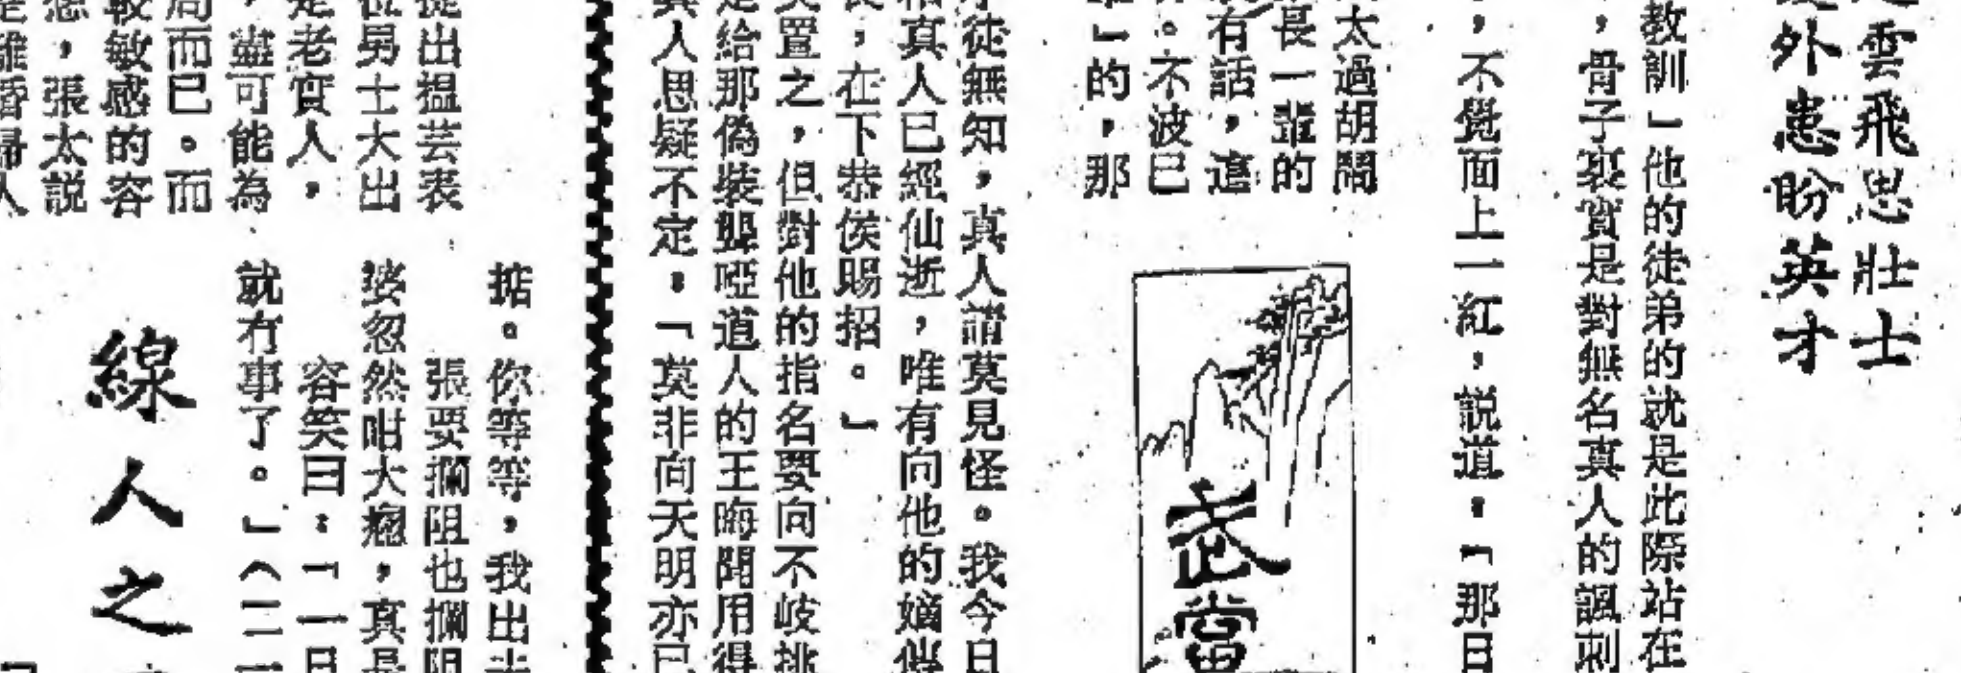 雲飛思壯士
外患盼英才
教訓」他的徒弟的就是此際站在
，骨子裏實是對無名真人的諷刺
，不覺面上一紅，説道：「那日
太過胡鬧
長一輩的
有話，這
。不波已
」的，那
武當
徒無知，真人請莫見怪。我今日
真人已經仙逝，唯有向他的嫡傳
，在下恭候賜招。」
置之，但對他的指名要向不岐挑
給那偽裝聾啞道人的王晦聞用得
人思疑不定：「莫非向天明亦已
提出揾芸表
男士大出
老實人，
，盡可能為
而已。而
敏感的容
，張太説
掂。你等等，我出
張要攔阻也攔阻
婆忽然咁大癮，真是
容笑曰：「一日
就冇事了。」（二
線人之